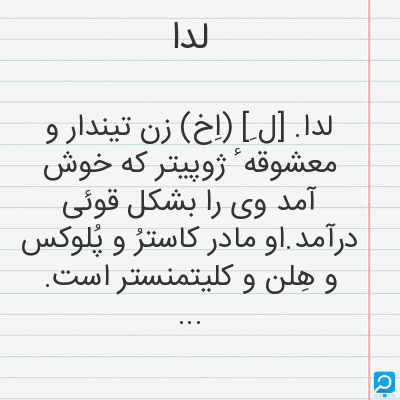 لدا
لدا. [ل ِ] (اِخ) زن تیندار و
معشوقه ٔ ژوپیتر که خوش
آمد وی را بشکل قوئی
درآمد.او مادر کاسترُ و پُلوکس
و هِلن و کلیتمنستر است.
...